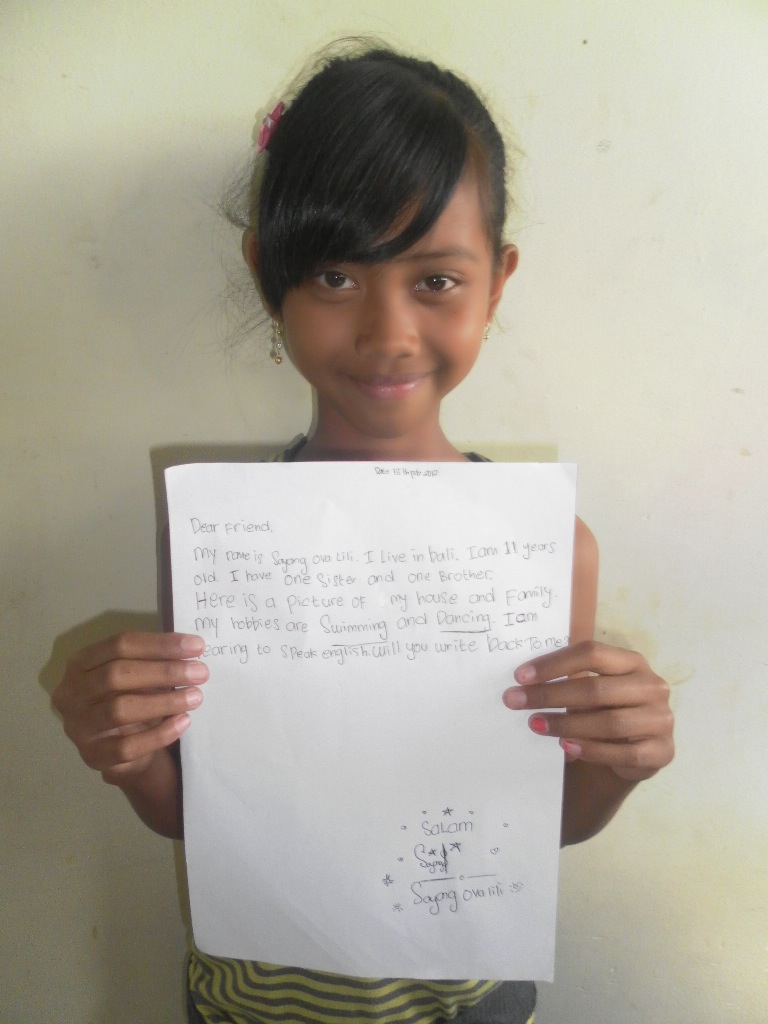 2012
Dear Friend,
My name is Sayong Ova Lili. I Live in bali. I am 11 years
old. I have one Sister and one Brother.
Here is a picture of my house and Family.
my hobbies are Swimming and Dancing. I am
earing to speak english. Will you write back To me?
Salam
Sayong
Sayong Ova lili